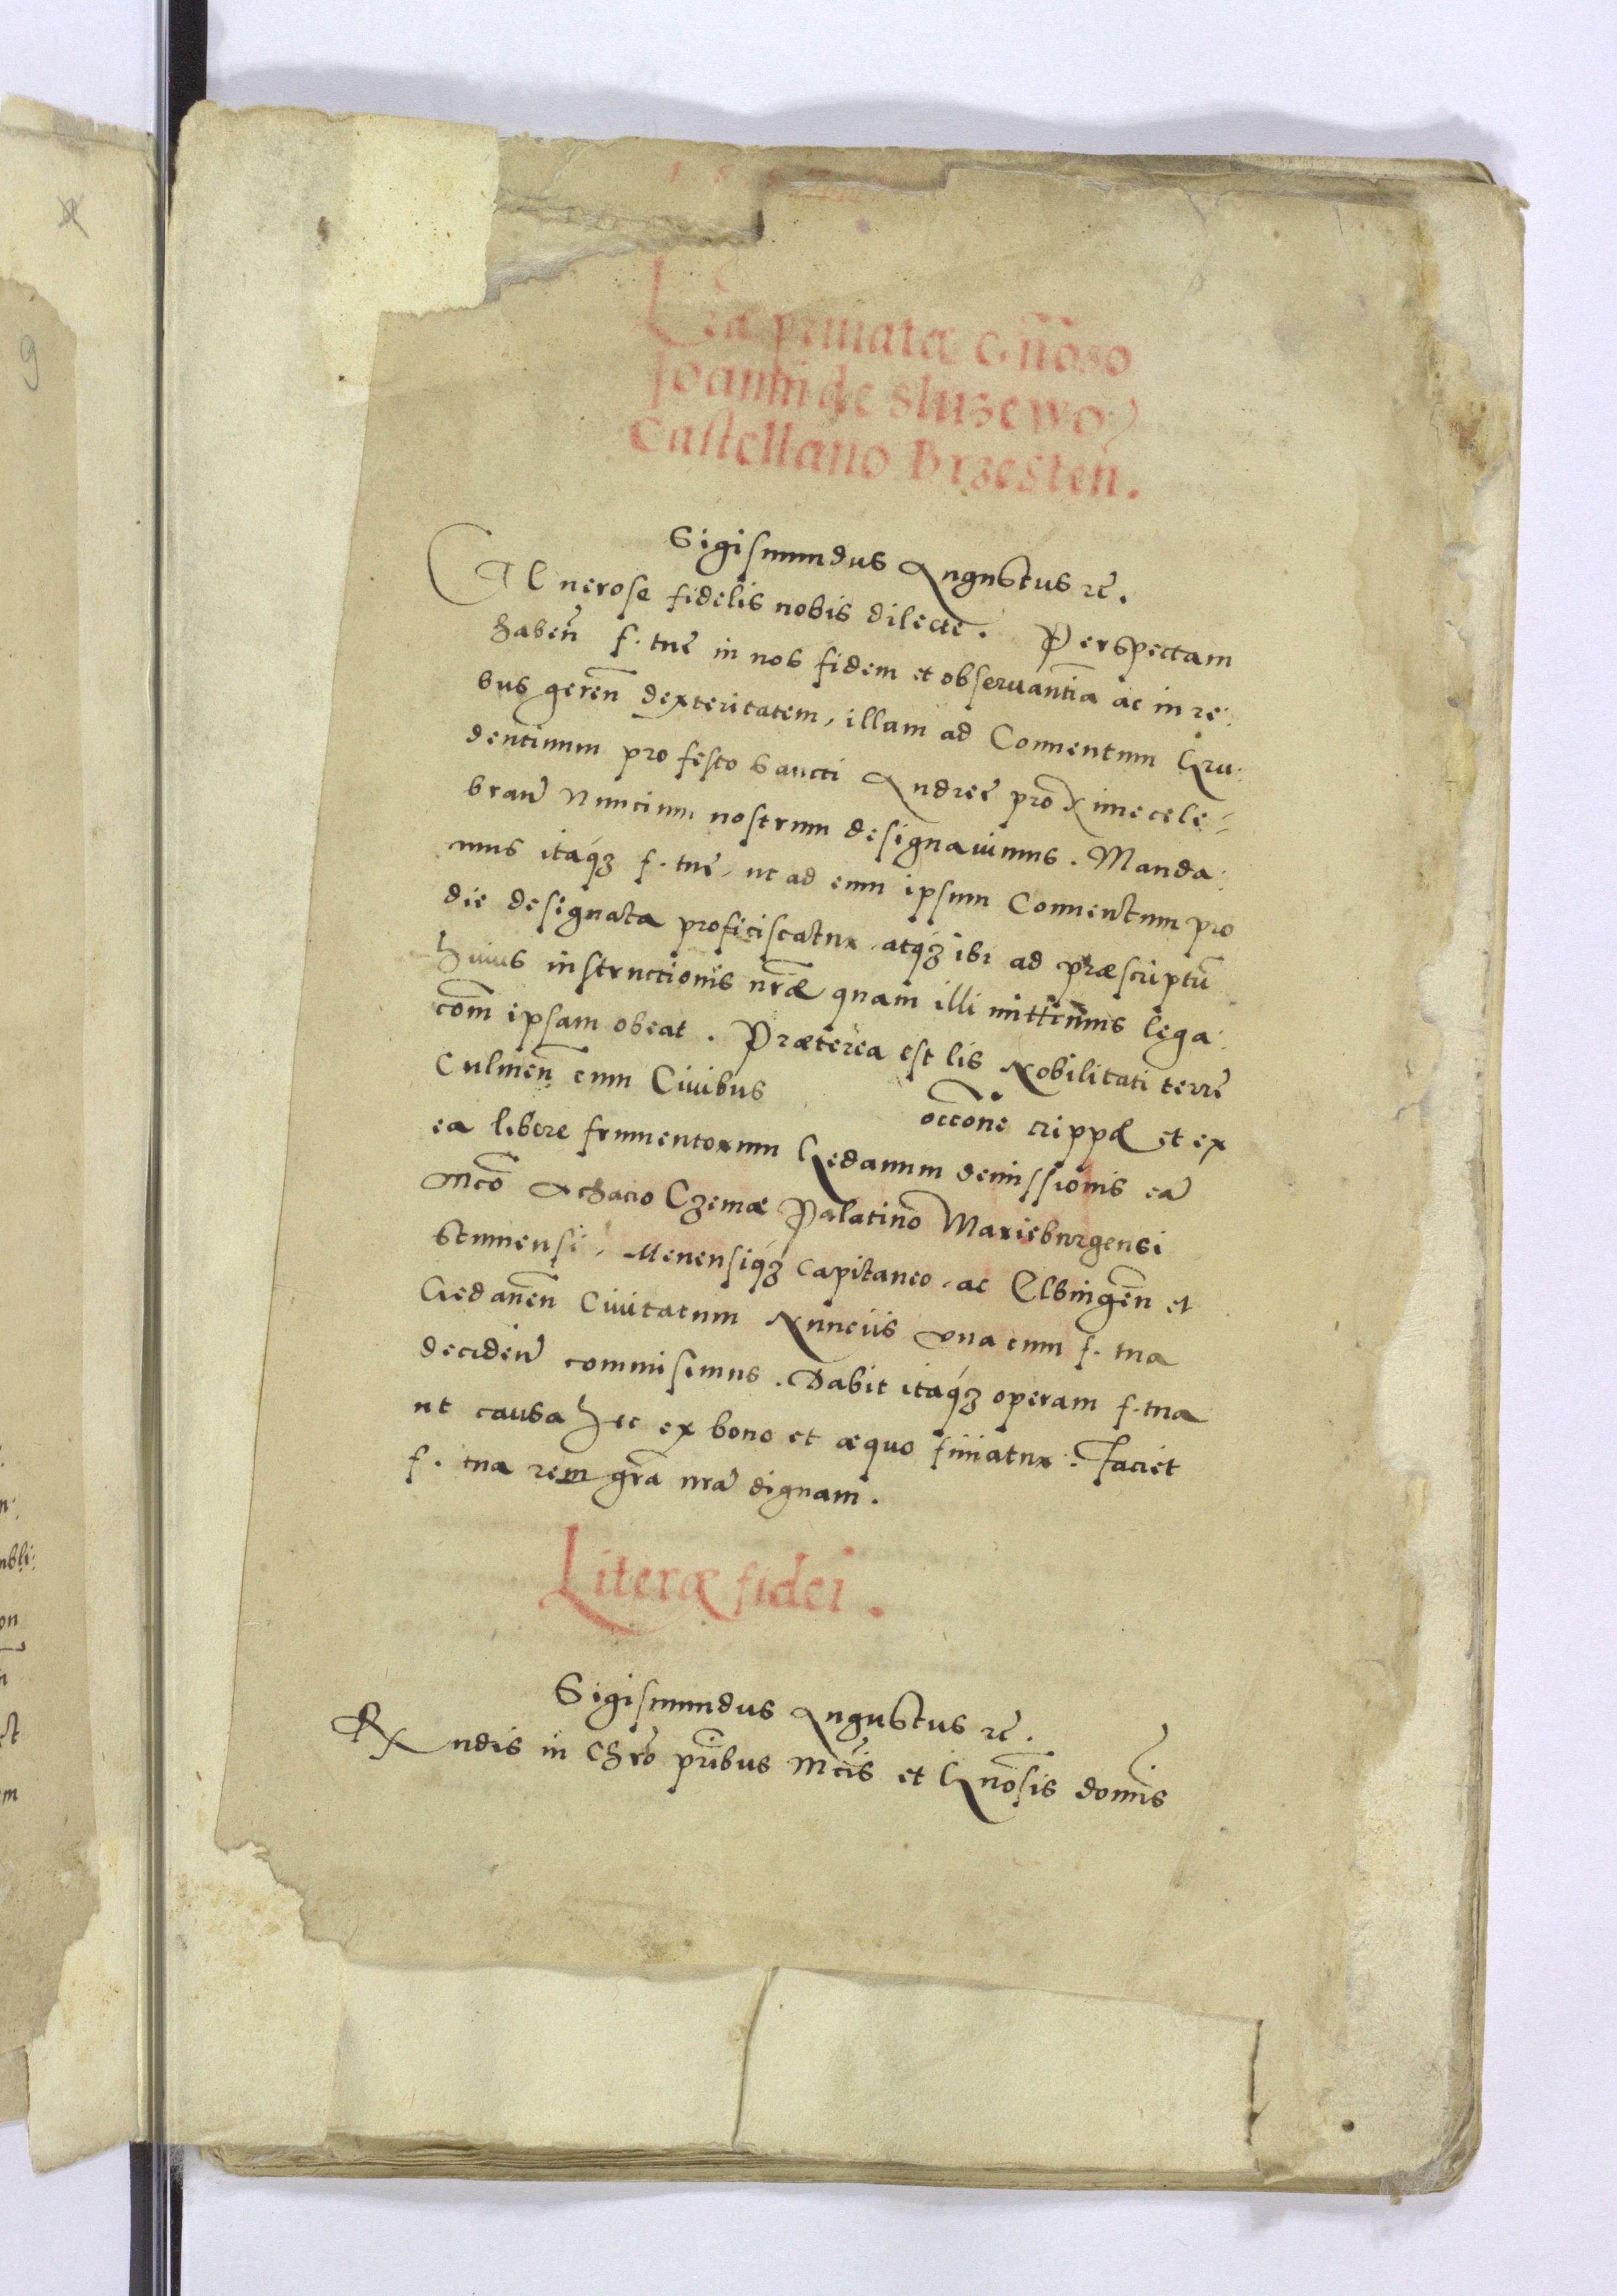 Lrae priuatae G. ñoso
Joanni de Sluzewo
Castellano Brzesten̄.
Sigismundus Augustus rc̄.
Generose fidelis nobis dilecte. Perspectam
haben̄ f. tuę in nos fidem et obseruantia ac in re:
bus geren̄ dexteritatem, illam ad Conuentum Gru:
dentinum pro festo Sancti Andreę proxime cele:
bran̄ Nuncium nostrum designauimus. Manda:
mus itaqꝫ f. tuę, ut ad eum ipsum Conuentum pro
die designata proficiscatur, atqꝫ ibi ad præscriptū
huius instructionis nr̄æ quam illi mittimus lega:
com̄ ipsam obeat. Præterea est lis Nobilitati terrę
Culmen̄ cum Ciuibus
occōne crippæ et ex
ea libere frumentorum Gedanum demissionis eā
Mcō Achacio Czemæ Palatino Marieburgensi
Stumensi, Meuensiqꝫ Capitaneo, ac Elbingen̄ et
Gedanen̄ Ciuitatum Nunciis una cum f. tua
deciden̄ commisimus. Dabit itaqꝫ operam f. tua
ut causa hec ex bono et æquo finiatur. Faciet
f. tua rem gr̄a nr̄a dignam.
Literæ fidei.
Sigismundus Augustus rc̄.
Rx ndis in Chr̄o pr̄ibus Mc̄is et Gn̄osis domīs
9